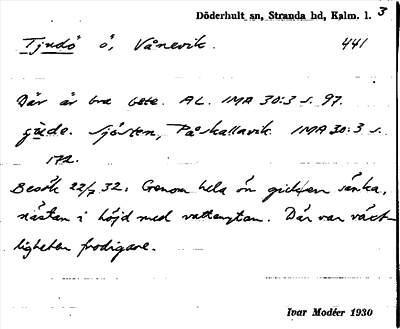 Döderhult sn, Stranda hd, Kalm. l. 3
Tjudö ö, Vånevik. 441
Där är bra bete. AL. IMA 30:3 s. 97.
gude. Sjösten, Påskallavik. IMA 30:3 s.
172.
Besök 22/7 32. Genom hela ön sänka,
nästan i höjd med vattenytan. Där var växt-
ligheten frodigare.
Ivar Modéer 1930